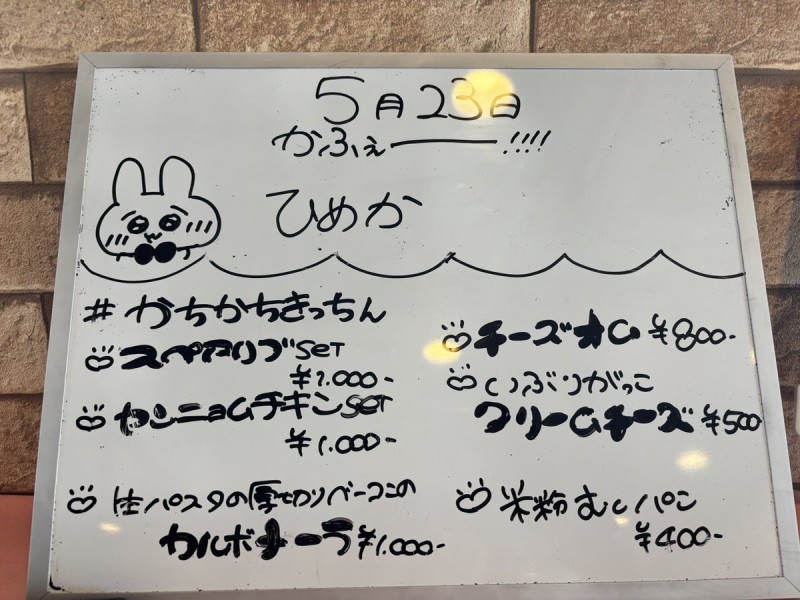 5月23日
かふぇー!!!!
ひめか
#かちかちきっちん
スペアリブSET
¥1.000-
ヤンニョムチキンSET
¥1.000-
生パスタの厚切りベーコンの
カルボナーラ¥1.000-
チーズオム¥800-
いぶりがっこ
クリームチーズ¥500
米粉むしパン
¥400-